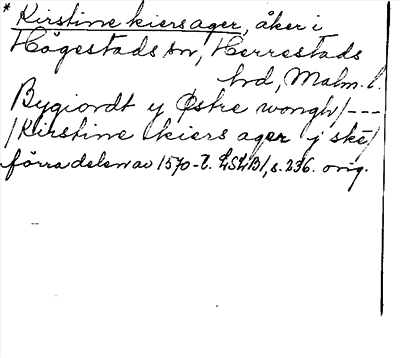 * Kirstine kiersager, åker i
Högestads sn, Herrestads
hd, Malm. l.
Bygiordt y Østre wongh/---
/Kirstine kiers ager j ske/
förra delen av 1570-t. LSLB1, s. 236. orig.